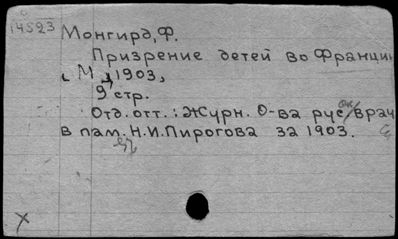 14523
Монгирд, Ф.
Призрение детей во Франции
М., 1903,
9 стр.
Отд. отт.: Журн. О-ва рус. врач
в пам. Н.И. Пирогова за 1903.